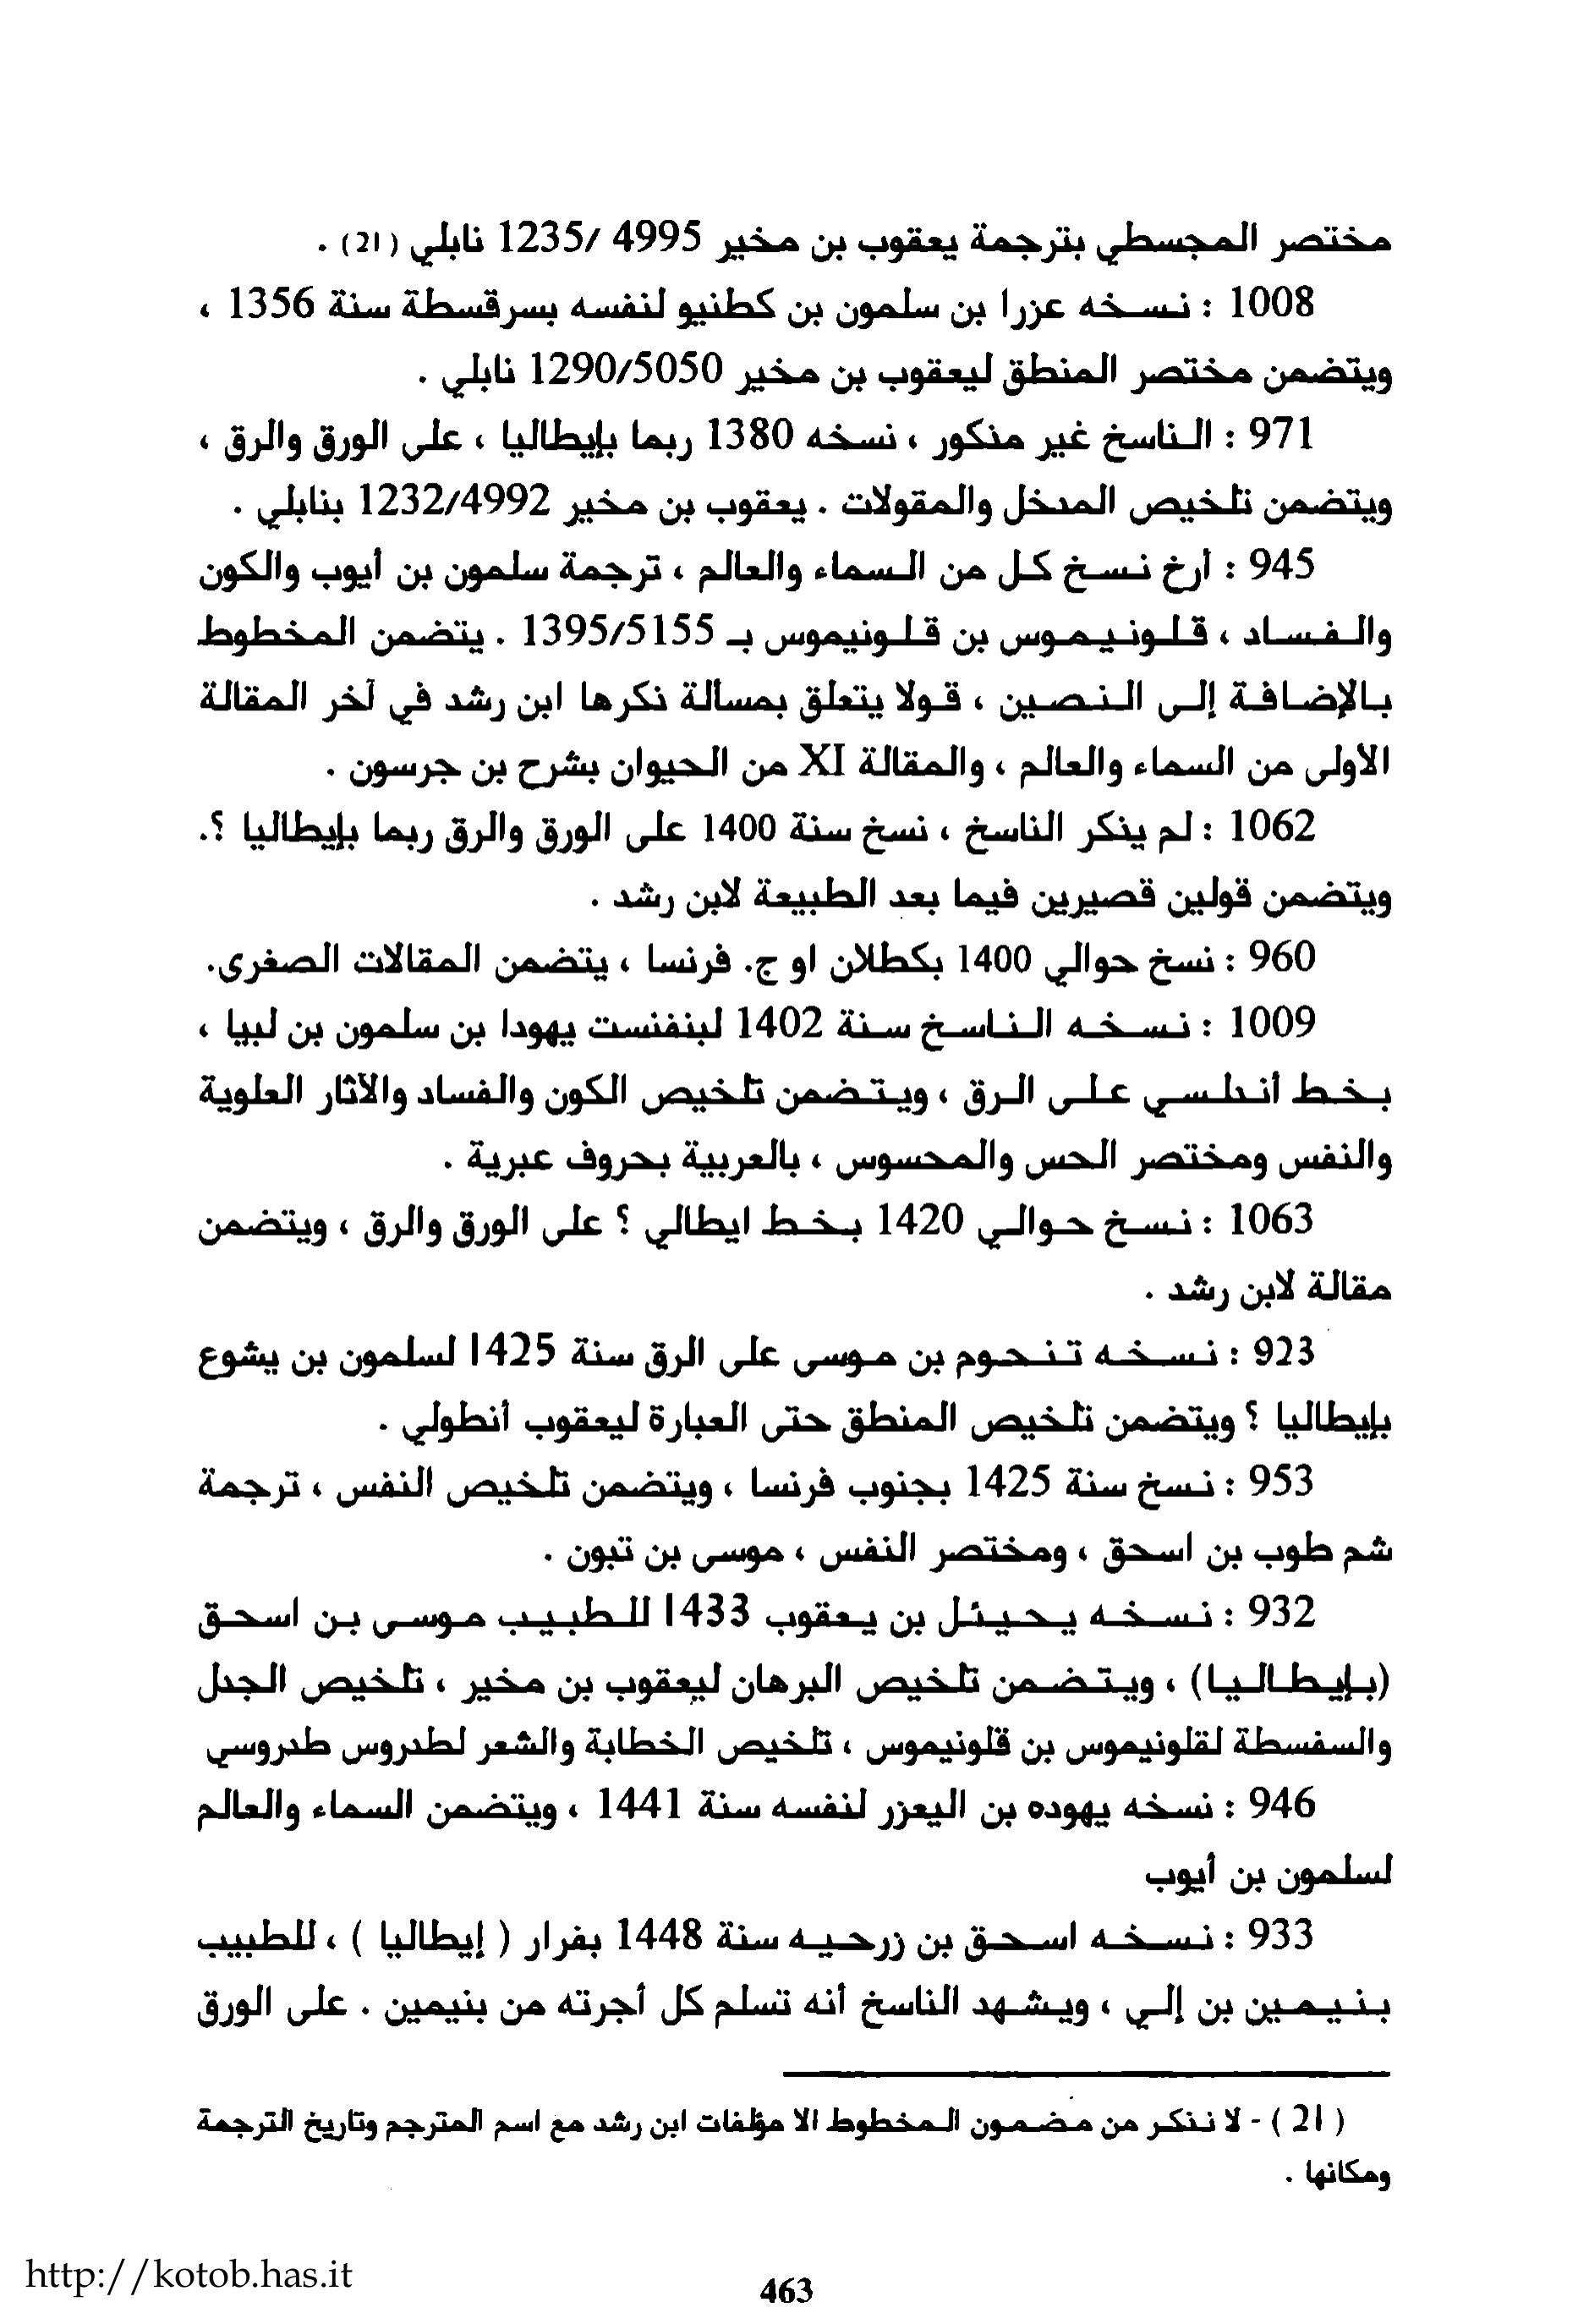 مختصر المجسطي بترجمة يعقوب بن مخير 4995 /1235 نابلي (21) .
1008 : نسخه عزرا بن سلمون بن كطنيو لنفسه بسرقسطة سنة 1356 ،
ويتضمن مختصر المنطق ليعقوب بن مخير 1290/5050 نابلي .
971 : الناسخ غير مذكور ، نسخه 1380 ربما بإيطاليا ، على الورق والرق ،
ويتضمن تلخيص المدخل والمقولات . يعقوب بن مخير 1232/4992 بنابلي .
945 : أرخ نسخ كل من السماء والعالم ، ترجمة سلمون بن أيوب والكون
والفساد ، قلونيموس بن قلونيموس بـ 1395/5155 . يتضمن المخطوط
بالإضافة إلى النصين ، قولا يتعلق بمسألة ذكرها ابن رشد في آخر المقالة
الأولى من السماء والعالم ، والمقالة XI من الحيوان بشرح بن جرسون .
1062 : لم يذكر الناسخ ، نسخ سنة 1400 على الورق والرق ربما بإيطاليا ؟.
ويتضمن قولين قصيرين فيما بعد الطبيعة لابن رشد .
960 : نسخ حوالي 1400 بكطلان او ج. فرنسا ، يتضمن المقالات الصغرى.
1009 : نسخه الناسخ سنة 1402 لبنفنست يهودا بن سلمون بن لبيا ،
بخط أندلسي على الرق ، ويتضمن تلخيص الكون والفساد والآثار العلوية
والنفس ومختصر الحس والمحسوس ، بالعربية بحروف عبرية .
1063 : نسخ حوالي 1420 بخط ايطالي ؟ على الورق والرق ، ويتضمن
مقالة لابن رشد .
923 : نسخه تنحوم بن موسى على الرق سنة 1425 لسلمون بن يشوع
بإيطاليا ؟ ويتضمن تلخيص المنطق حتى العبارة ليعقوب أنطولي .
953 : نسخ سنة 1425 بجنوب فرنسا ، ويتضمن تلخيص النفس ، ترجمة
شم طوب بن اسحق ، ومختصر النفس ، موسى بن تبون .
932 : نسخه يحيئل بن يعقوب 1433 للطبيب موسى بن اسحق
(بإيطاليا) ، ويتضمن تلخيص البرهان ليعقوب بن مخير ، تلخيص الجدل
والسفسطة لقلونيموس بن قلونيموس ، تلخيص الخطابة والشعر لطدروس طدروسي
946 : نسخه يهوده بن اليعزر لنفسه سنة 1441 ، ويتضمن السماء والعالم
لسلمون بن أيوب
933 : نسخه اسحق بن زرحيه سنة 1448 بفرار ( إيطاليا ) ، للطبيب
بنيمين بن إلي ، ويشهد الناسخ أنه تسلم كل أجرته من بنيمين . على الورق
( 21 ) - لا نذكر من مضمون المخطوط الا مؤلفات ابن رشد مع اسم المترجم وتاريخ الترجمة
ومكانها .
http://kotob.has.it
463